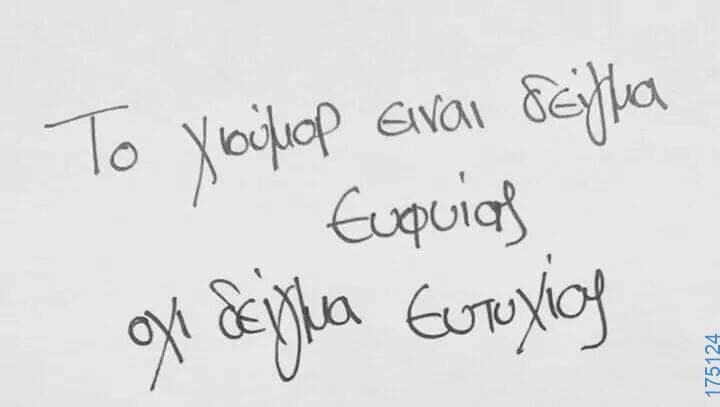 Το χιούμορ ειναι δείγμα
Ευφυίας
οχι δείγμα Ευτυχίας
175124